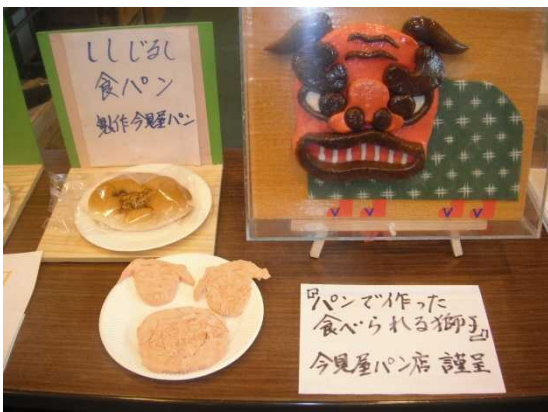 ししじるし
食パン
製作今見屋パン
『パンで作った
食べられる獅子』
今見屋パン店 謹呈